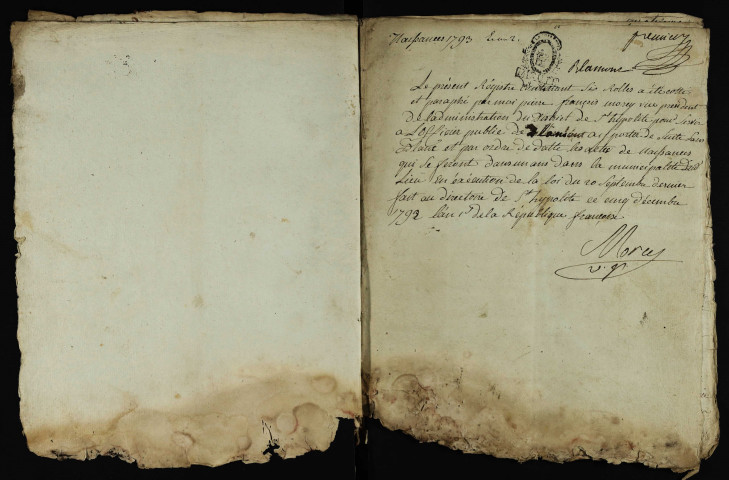 Naissances 1793
premier
Blamont
Le présent Régistre Contenant Six Rolles a été cotté
et paraphé par moi pierre françois morey vice president
De l'administration du District de St hypolite pour servir
a L'officier public de Blamont a y porter de Suite Sans
Blanc et par ordre de datte les actes de naissances
qui Se feront dans la municipalité dud
Lieu En exécution de la loi du 20 Septembre dernier
fait au directoire de St hypolite ce cinq décembre
1792 L'an 1r de la République françoise
Morey
v. p.